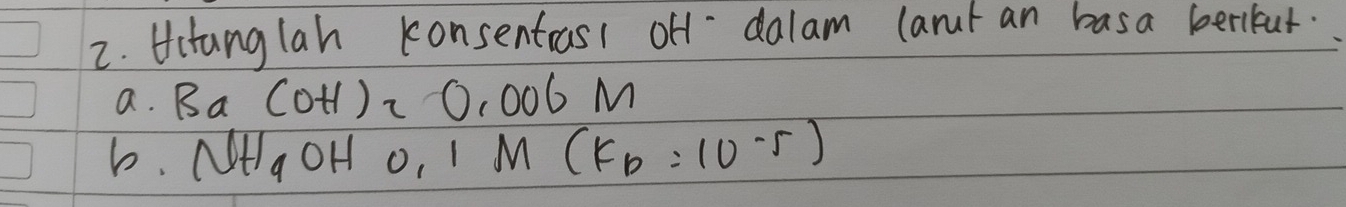 2. Hitunglah konsentrasi OH⁻ dalam larutan basa berikut.
a. Ba (OH)₂ 0,006 M
b. NH₄OH 0,1 M (Kb = 10⁻⁵)